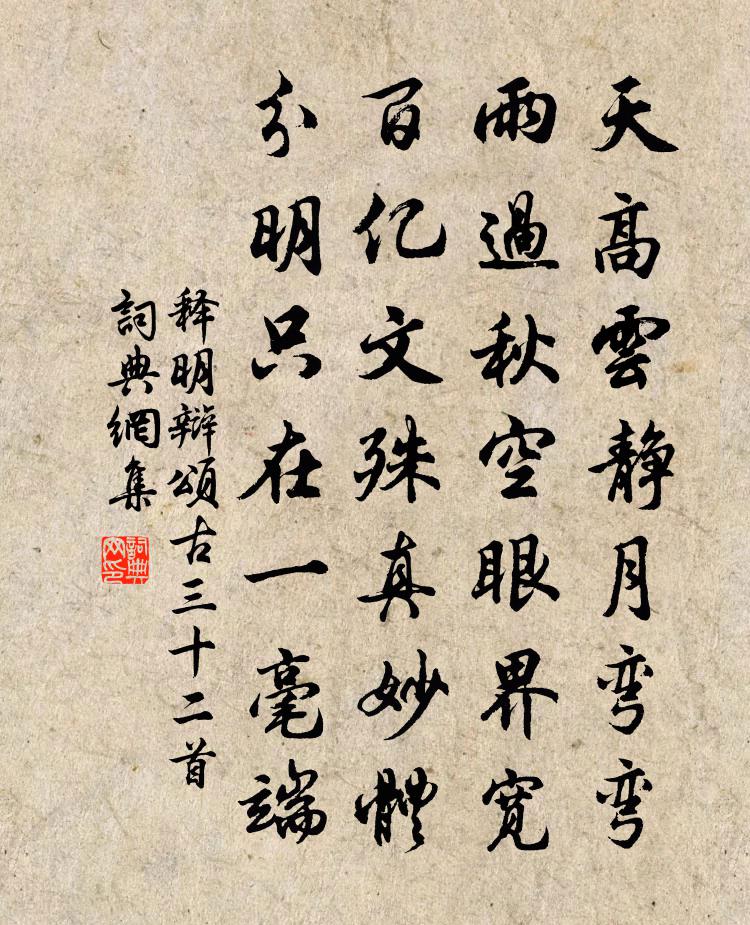 天高雲静月弯弯
雨過秋空眼界寬
百亿文殊真妙體
分明只在一毫端
释明辯頌古三十二首
詞典網集
詞典
网印